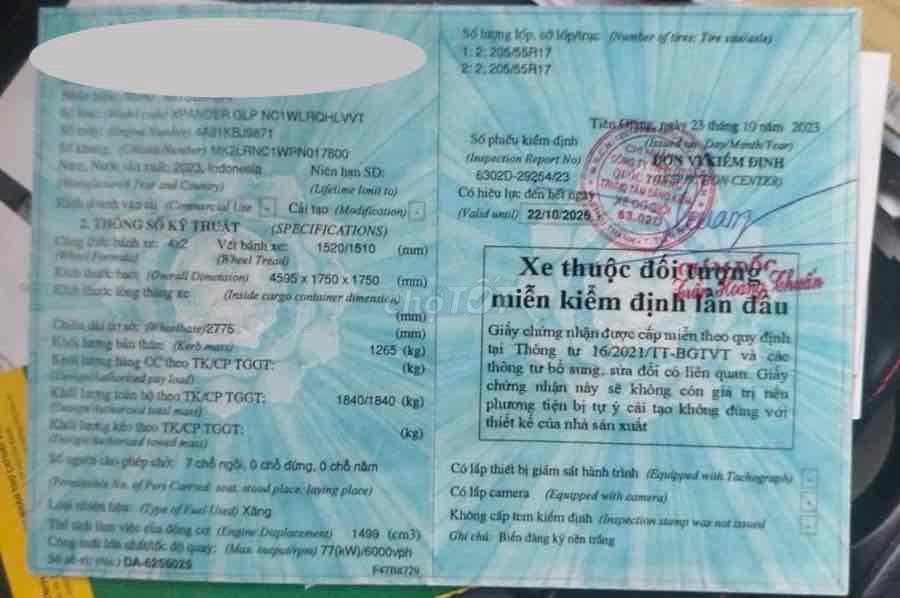 XPANDER GLP NC1WLRQHLVVT
Số máy: (Engine Number) 4A91KBJ9871
Số khung: (Chassis Number) MK2LRNC1WPN017800
Năm, Nước sản xuất: 2023, Indonesia Niên hạn SD:
(Manufactured Year and Country) (Lifetime limit to)
Kinh doanh vận tải (Commercial Use) - Cải tạo (Modification) -
2. THÔNG SỐ KỸ THUẬT (SPECIFICATIONS)
Công thức bánh xe: 4x2 Vết bánh xe: 1520/1510 (mm)
(Wheel Formula) (Wheel Tread)
Kích thước bao: (Overall Dimension) 4595 x 1750 x 1750 (mm)
Kích thước lòng thùng xe (Inside cargo container dimention)
(mm)
Chiều dài cơ sở: (Wheelbase) 2775 (mm)
Khối lượng bản thân: (Kerb mass) 1265 (kg)
Khối lượng hàng CC theo TK/CP TGGT: (kg)
(Authorized pay load)
Khối lượng toàn bộ theo TK/CP TGGT: 1840/1840 (kg)
(Design/Authorized total mass)
Khối lượng kéo theo TK/CP TGGT: (kg)
(Design/Authorized towed mass)
Số người cho phép chở: 7 chỗ ngồi, 0 chỗ đứng, 0 chỗ nằm
(Permissible No. of Pers Carried: seat, stood place, laying place)
Loại nhiên liệu: (Type of Fuel Used) Xăng
Thể tích làm việc của động cơ: (Engine Displacement) 1499 (cm3)
Công suất lớn nhất/tốc độ quay: (Max. output/rpm) 77(kW)/6000vph
Số sê-ri: (No.) DA-6256025
F47B8729
Số lượng lốp, cỡ lốp/trục: (Number of tires; Tire size/axle)
1: 2; 205/55R17
2: 2; 205/55R17
Tiền Giang, ngày 23 tháng 10 năm 2023
Số phiếu kiểm định (Issued on: Day/Month/Year)
(Inspection Report No) ĐƠN VỊ KIỂM ĐỊNH
6302D-29254/23 (INSPECTION CENTER)
Có hiệu lực đến hết ngày
(Valid until) 22/10/2026
63.02D
GIÁM ĐỐC
Xe thuộc đối tượng
miễn kiểm định lần đầu
Giấy chứng nhận được cấp miễn theo quy định
tại Thông tư 16/2021/TT-BGTVT và các
thông tư bổ sung, sửa đổi có liên quan. Giấy
chứng nhận này sẽ không còn giá trị nếu
phương tiện bị tự ý cải tạo không đúng với
thiết kế của nhà sản xuất
Có lắp thiết bị giám sát hành trình (Equipped with Tachograph) -
Có lắp camera (Equipped with camera) -
Không cấp tem kiểm định (Inspection stamp was not issued -
Ghi chú: Biển đăng ký nền trắng
choTỐT